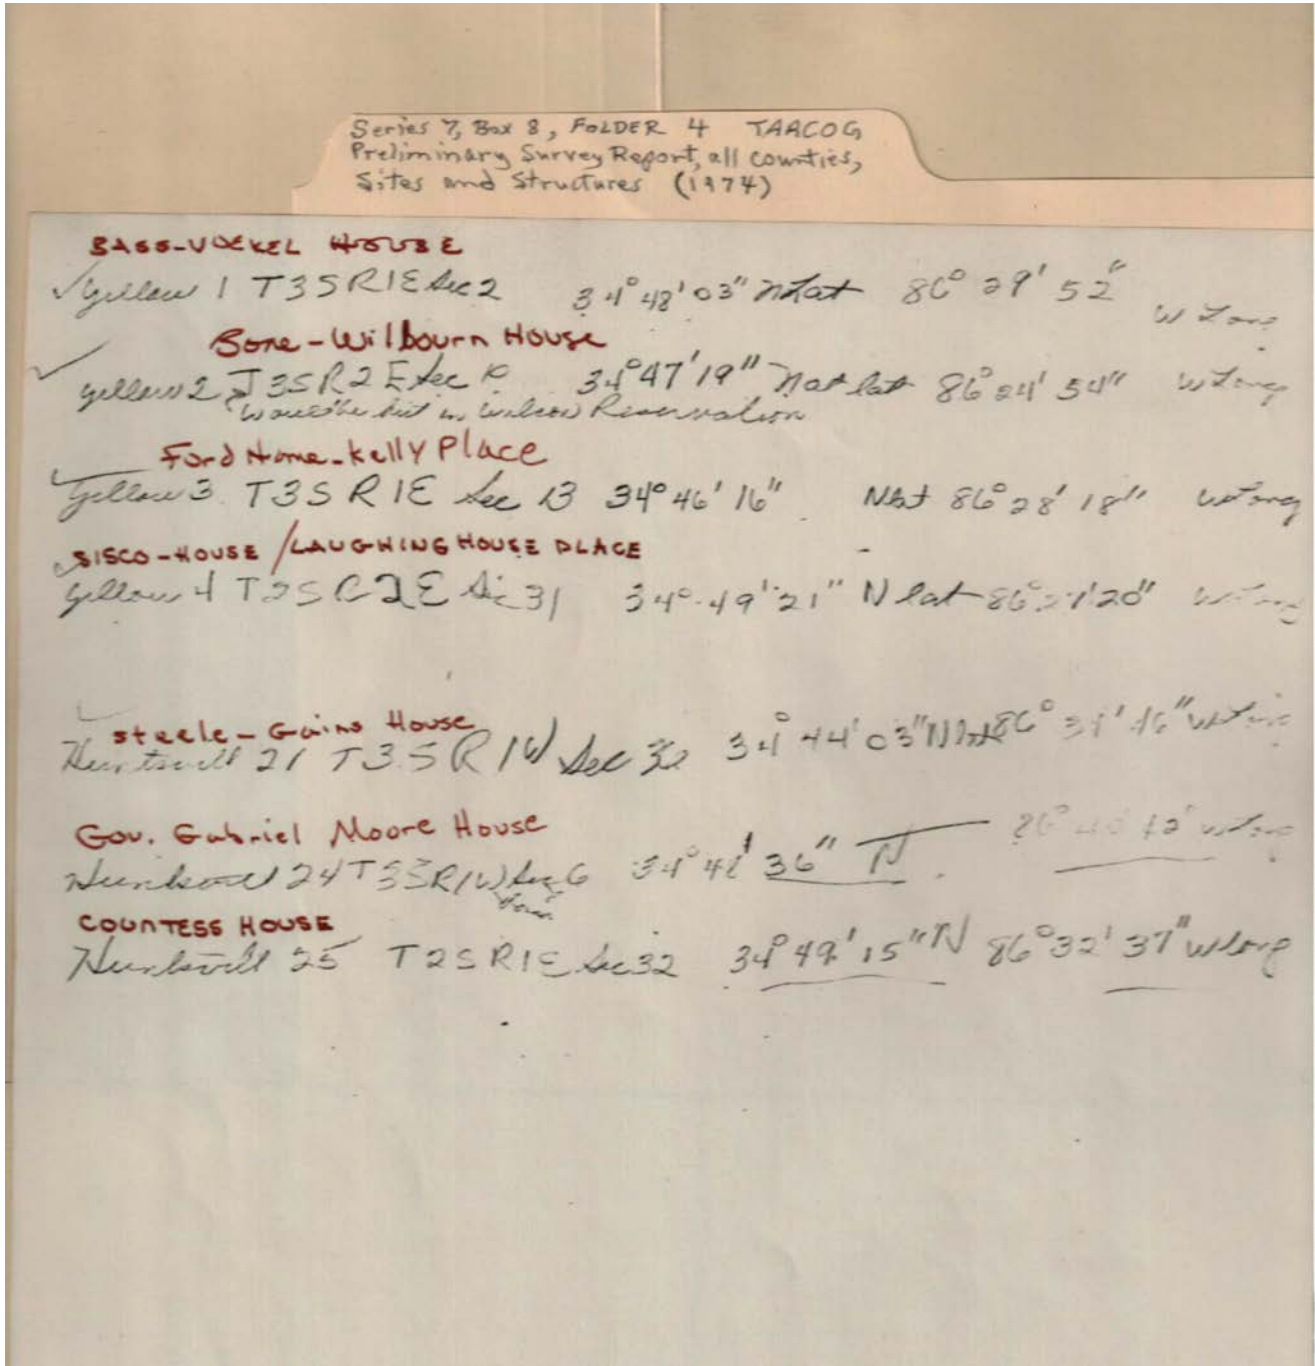 Series 7, Box 8, FOLDER 4 TARCOG
Preliminary Survey Report, all counties,
Sites and Structures (1974)
BASS-VOEKEL HOUSE
✓ Yellow 1 T3S R1E Sec 2 34° 48' 03" N Lat 86° 29' 52" W Long
Bone-Wilbourn House
✓ yellow 2 T3S R2E Sec 10 34° 47' 19" lat 86° 24' 54" W Long
in Reservation
Ford Home-Kelly Place
✓ Yellow 3. T3S R1E Sec 13 34° 46' 16" N lat 86° 28' 18" W Long
SISCO-HOUSE / LAUGHING HOUSE PLACE
Yellow 4 T2S R2E Sec 31 34° 49' 21" N lat 86° 20" W Long
✓ Steele-Gains House
Huntsvill 21 T3S R1W Sec 34° 44' 03" N lat 86° W Long
Gov. Gabriel Moore House
Huntsvill 24 T3S R1W Sec 6 34° 36" N 86° W Long
COUNTESS HOUSE
Huntsvill 25 T2S R1E Sec 32 34° 49' 15" N 86° 32' 37" W Long